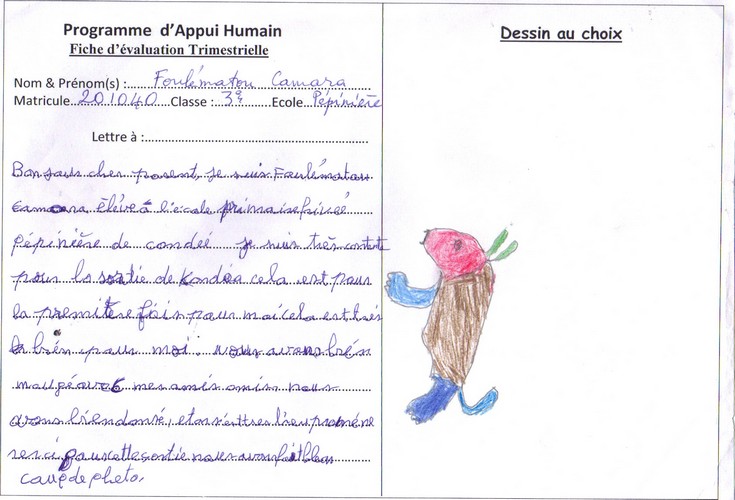 Programme d'Appui Humain
Fiche d'évaluation Trimestrielle
Nom & Prénom(s) : Foulématou Camara
Matricule 201040 Classe : 3e Ecole Pépinière
Lettre à :
Bonjour cher parent, je suis Foulématou
Camara élève à l'ecole primaire privée
pépinière de condéé je suis très contente
pour la sortie de Kondéa cela est pour
la première fois pour moi cela est très
bien pour moi. nous avons bien
mangé avec mes amis amis nous
avons bien dansé, et on s'est très bien promené
merci pour cette sortie nous avons fait blan
coup de photo.
Dessin au choix